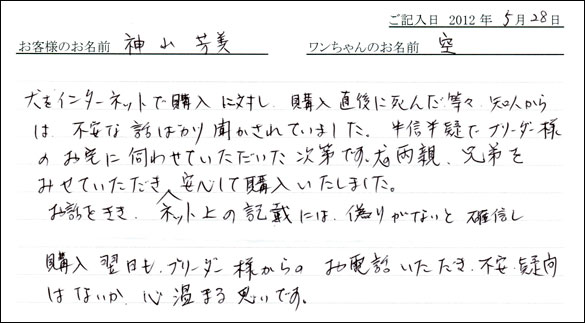 ご記入日 2012年 5月28日
お客様のお名前 神山 芳美 ワンちゃんのお名前 空
犬をインターネットで購入に対し、購入直後に死んだ等々、知人から
は、不安な話ばかり聞かされていました。半信半疑でブリーダー様
のお宅に伺わせていただいた次第です。犬両親、兄弟を
みせていただき、安心して購入いたしました。
お話をきき、ネット上の記載には、偽りがないと確信し
購入翌日も、ブリーダー様からのお電話いただき、不安、疑問
はないか、心温まる思いです。